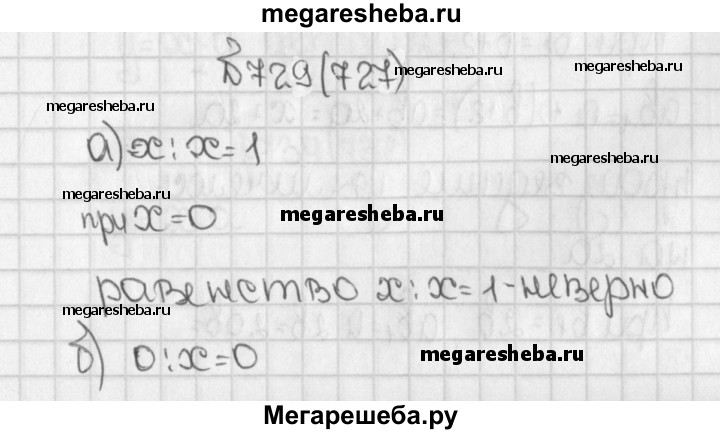 megaresheba.ru
№729(727)
megaresheba.ru
megaresheba.ru
megaresheba.ru
а) x:x=1
megaresheba.ru
megaresheba.ru
при x=0
megaresheba.ru
равенство x:x=1-неверно
megaresheba.ru
б) 0:x=0
megaresheba.ru
Мегарешеба.ру